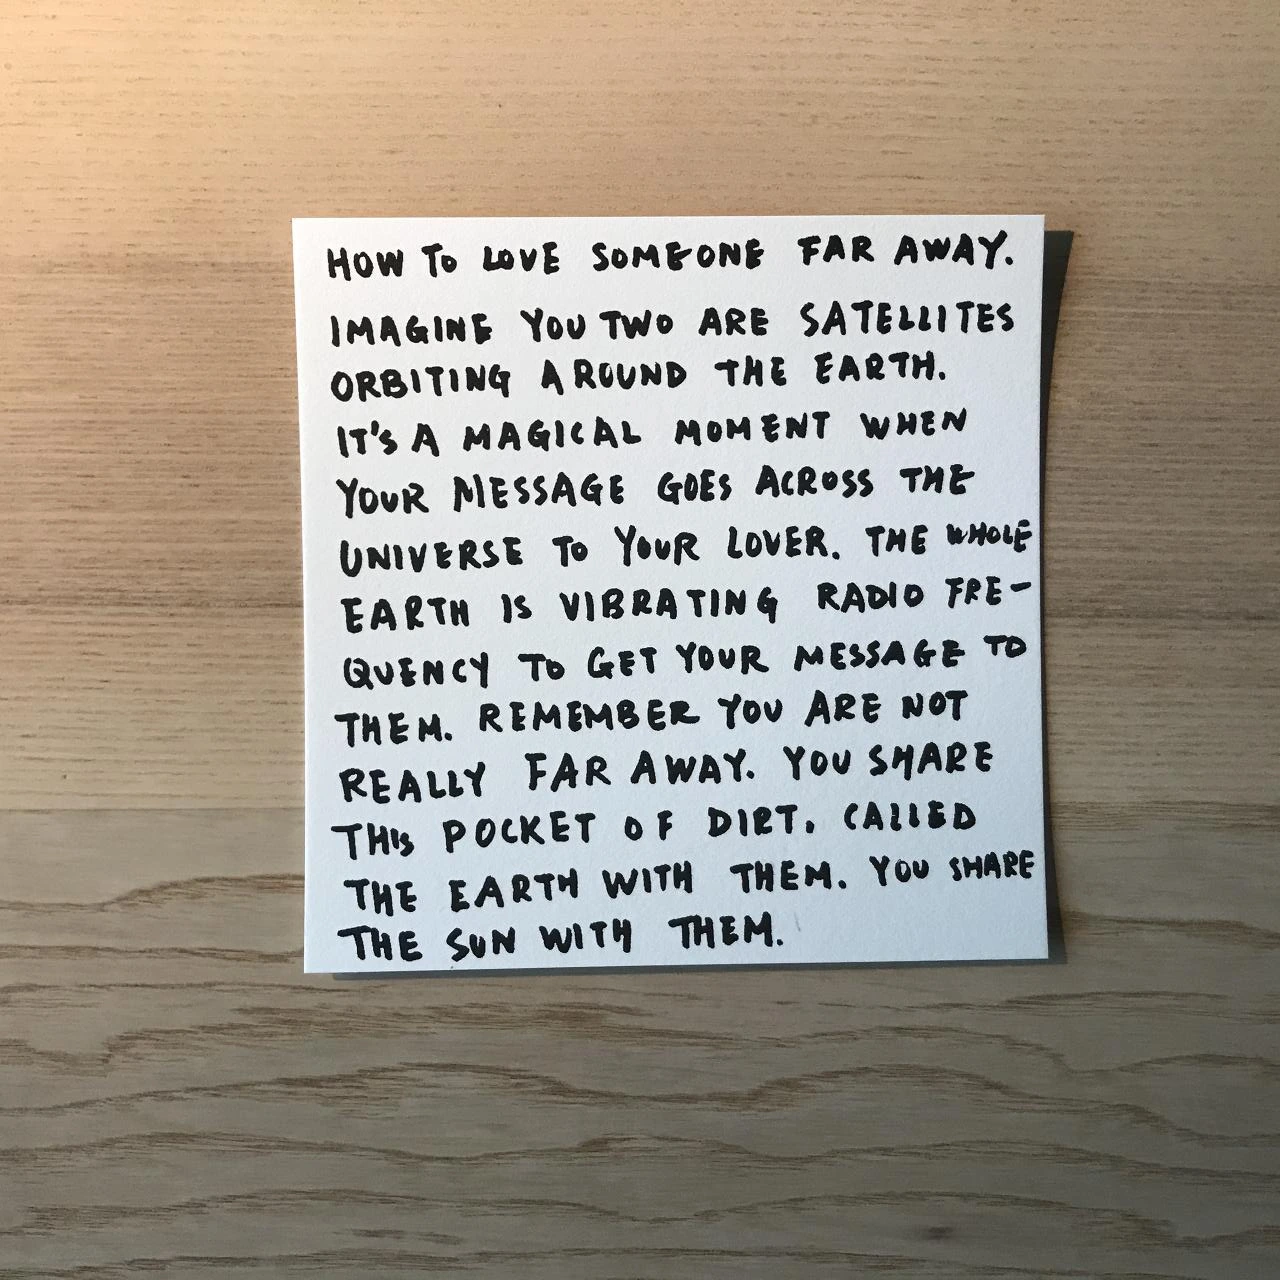 HOW TO LOVE SOMEONE FAR AWAY.
IMAGINE YOU TWO ARE SATELLITES
ORBITING AROUND THE EARTH.
IT'S A MAGICAL MOMENT WHEN
YOUR MESSAGE GOES ACROSS THE
UNIVERSE TO YOUR LOVER. THE WHOLE
EARTH IS VIBRATING RADIO FRE-
QUENCY TO GET YOUR MESSAGE TO
THEM. REMEMBER YOU ARE NOT
REALLY FAR AWAY. YOU SHARE
THIS POCKET OF DIRT. CALLED
THE EARTH WITH THEM. YOU SHARE
THE SUN WITH THEM.